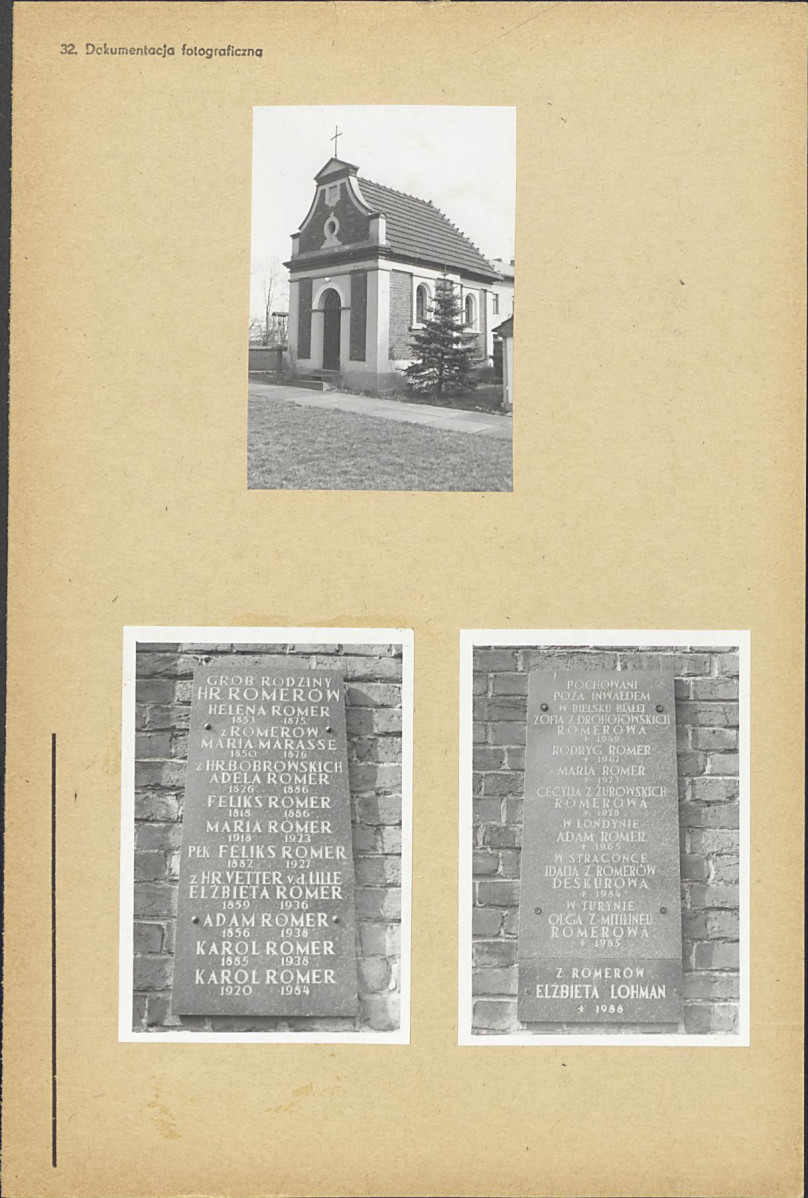 32. Dokumentacja fotograficzna
GRÓB RODZINY
HR. ROMERÓW
HELENA ROMER
1853 1875
z ROMERÓW
MARIA MARASSE
1850 1876
z HR.BOBROWSKICH
ADELA ROMER
1826 1886
FELIKS ROMER
1818 1886
MARIA ROMER
1918 1923
PŁK FELIKS ROMER
1882 1927
z HR. VETTER v.d. LILLE
ELŻBIETA ROMER
1859 1936
ADAM ROMER
1856 1938
KAROL ROMER
1885 1938
KAROL ROMER
1920 1984
POCHOWANI
POZA INWAŁDEM
W BIELSKU BIAŁEJ
ZOFIA Z DROHOJOWSKICH
ROMEROWA
RODRYG ROMER
MARIA ROMER
CECYLIA Z ŻUROWSKICH
ROMEROWA
W LONDYNIE
ADAM ROMER
+ 1965
W STRACONCE
IDALIA Z ROMERÓW
DESKUROWA
+ 1984
W TURYNIE
OLGA Z MITILINEU
ROMEROWA
+ 1985
Z ROMERÓW
ELŻBIETA LOHMAN
+ 1988